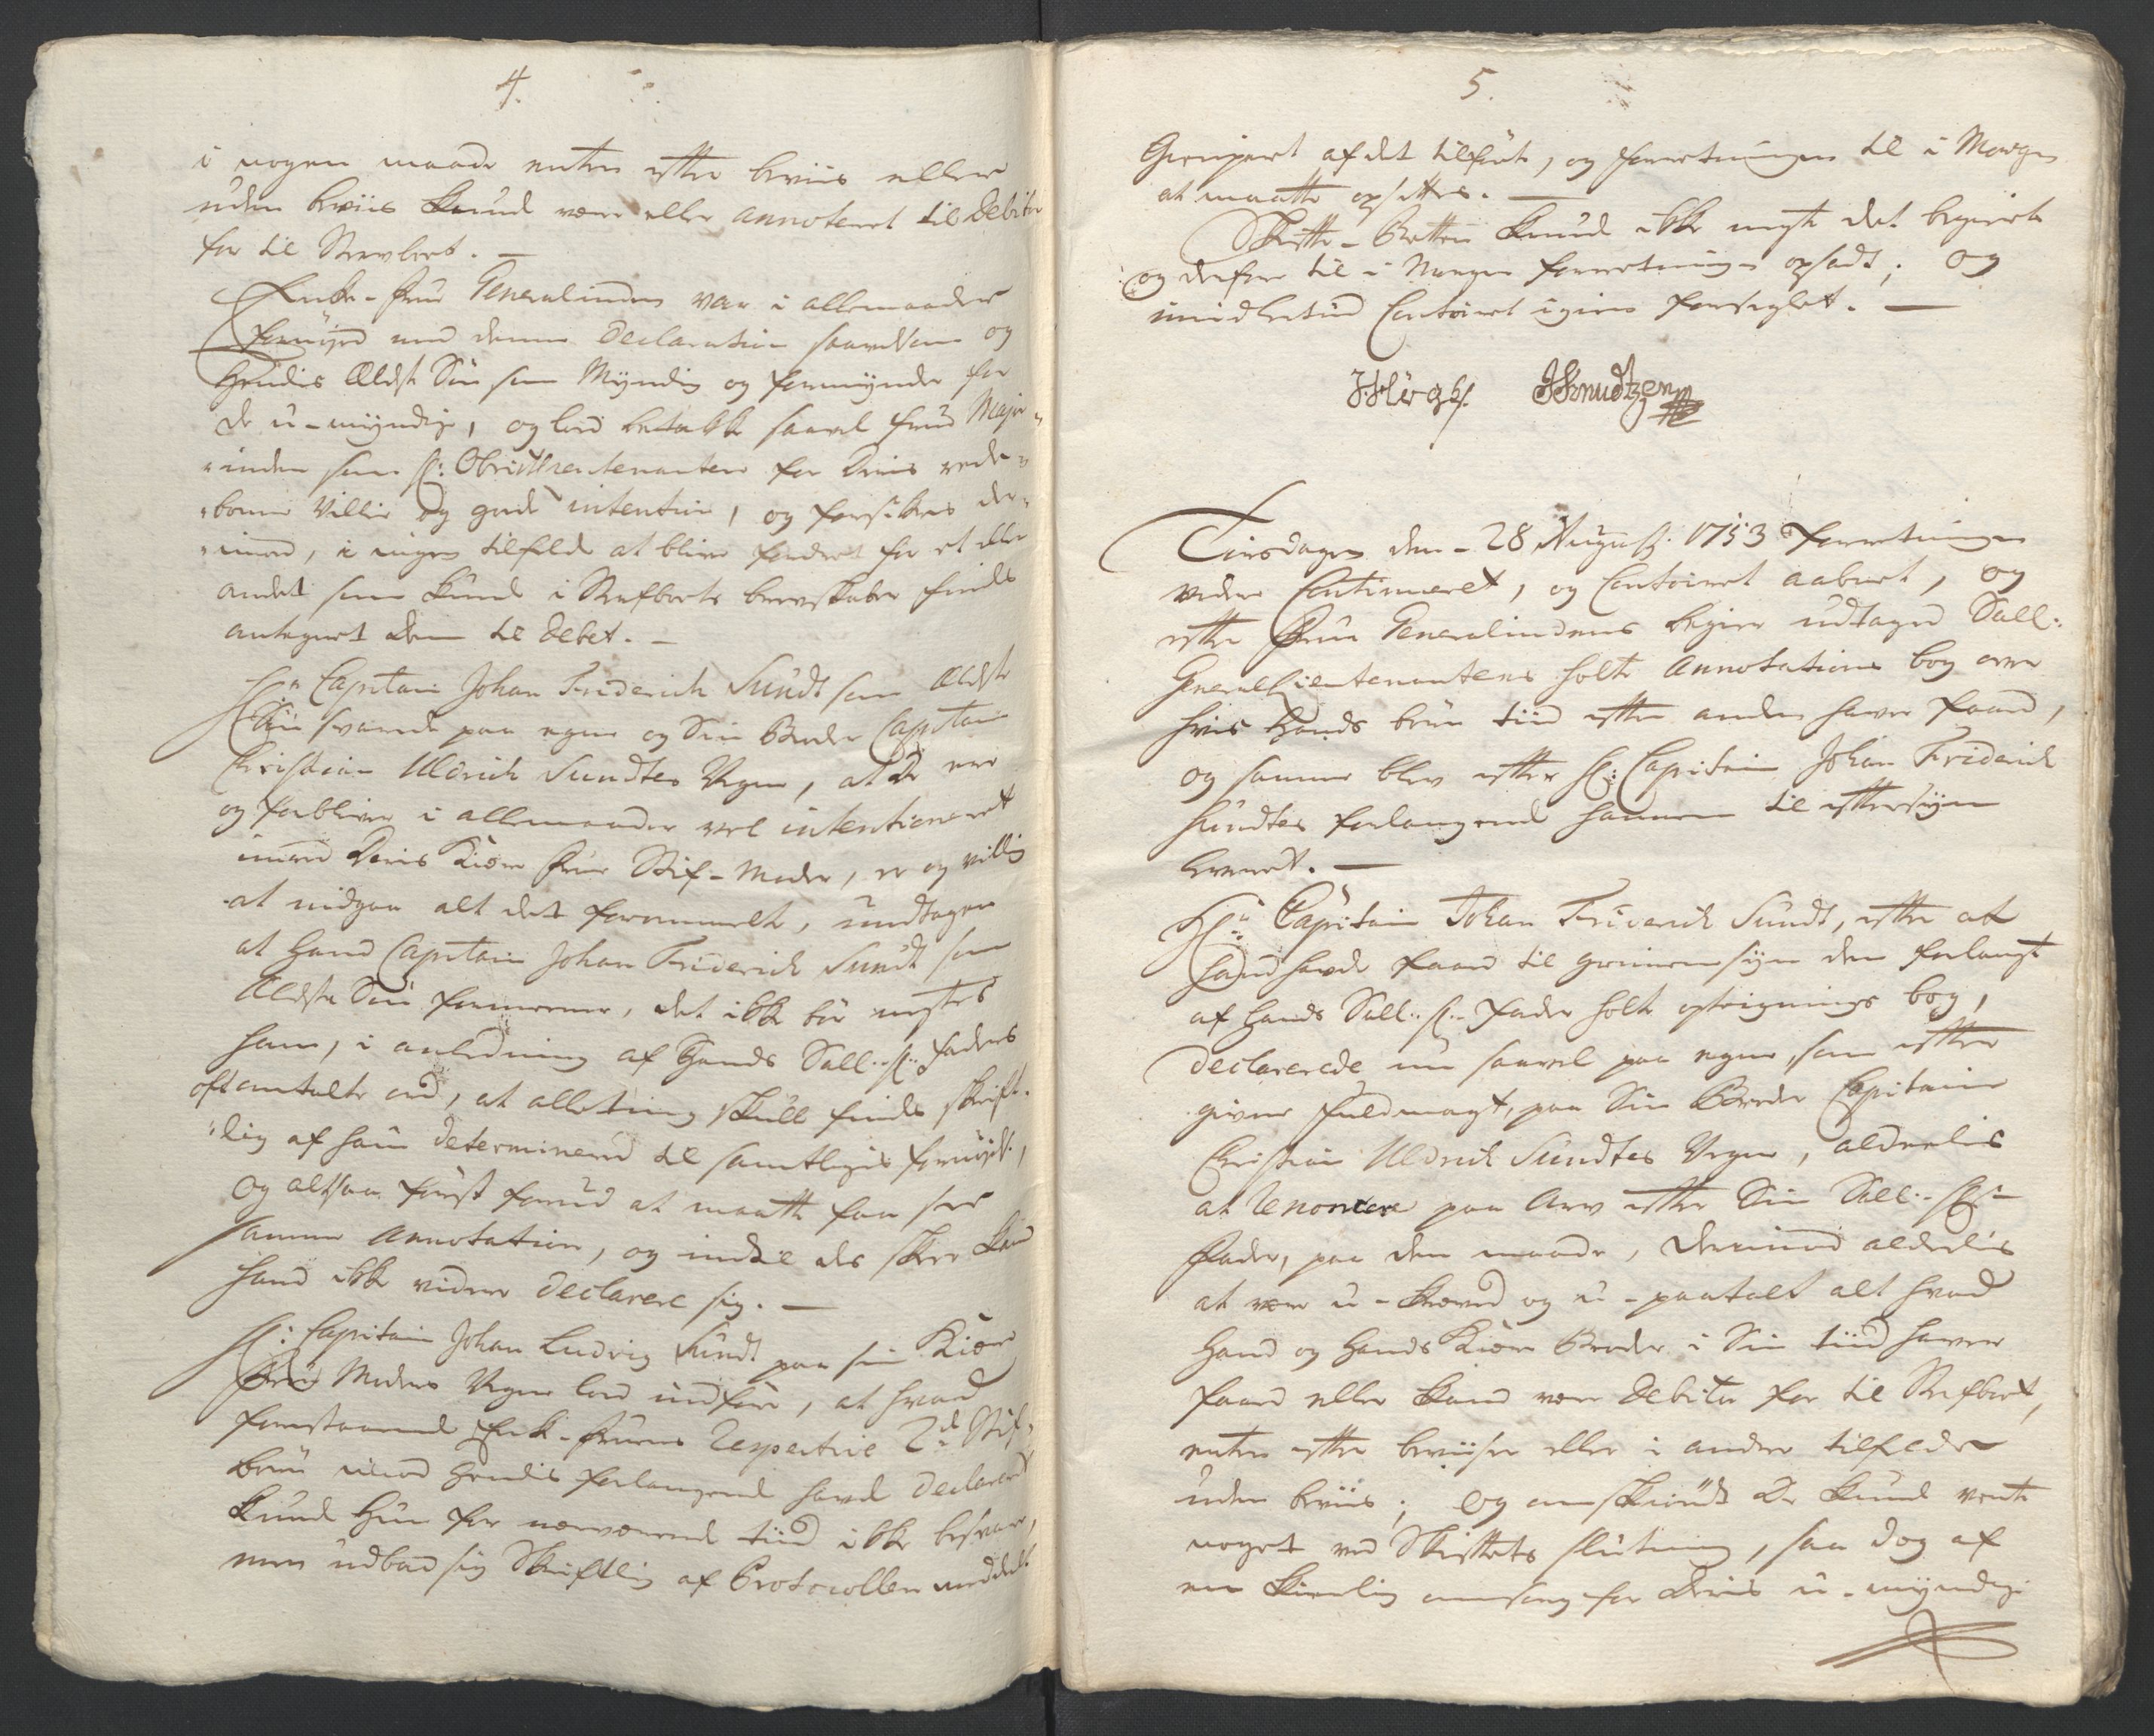 4.
i nogen maade enten efter beviis eller
uden beviis kunde være eller annoteret til Debitor
for til Sterboet. —
Enke-Frue Generalinden var i allemaader
fornøyed med denne Declaration saavelsom og
Hendis Ældste Søn som Myndig og formynder for
de u-myndige, og lod betakke saavel Frue Major-
inden som Hr: Obristlieutenanten for Deris rede-
bonne Villie og gode intention, og forsikres der-
imod, i ingen tilfelde at blive fordret for et eller
andet som kunde i Sterfboets brevskaber findes
antegnet dem til debet. —
Hr. Capitain Johan Friderich Sundt som Ældste
Søn svarede paa egne og Sin Broder Capitain
Christian Uldrich Sundtes Vegne, at De ere
og forbliver i allemaader vel intentioneret
imod Deris Kiære Frue Stif-Moder, er og villig
at indgaa alt det formeente, undtagen
at Hand Capitain Johan Friderich Sundt som
Ældste Søn formeener, det ikke bør negtes
ham, i anledning af Hands Sall. Hr. Faders
oft omtalte ord, at alleting skulle findes skrift-
lig af ham determinered til samtliges fornøyelse,
og altsaa først forud at maatte faa see
samme Annotation, og indtil det skeer kand
hand ikke videre declarere sig. —
Hr: Capitain Johan Ludvig Sundt paa sin Kiære
Frue Moders Vegne lod indføre, at hvad
forestaaende Enke-Fruens respective 2de Stif-
børn imod Hendis forlangende havde declareret
kunde Hun for nærværende tiid ikke besvare,
men udbad sig Skriftlig af Protocollen meddelt
5.
Gienpart af det tilførte, og forretningen til i Morgen
at maatte opsettes. —
Skifte-Retten kunde ikke negte det begierte
og derfore til i Morgen forretningen opsadt; og
imidlertiid Contoiret igien forseglet. —
HKnudtzen
Tiirsdagen den 28 August: 1753 forretningen
videre Continueret, og Contoiret aabnet, og
efter Frue Generalindens begier udtaget Sall.
General Lieutenantens holte Annotations bog over
hvis Hands børn tiid efter anden haver faaed,
og samme blev efter Hr: Capitain Johan Friderich
Sundtes forlangende hannem til eftersyn
leveret. —
Hr. Capitain Johan Friderich Sundt, efter at
Hand havde faaed til giennemsyn den forlangte
af Hands Sall. Hr. Fader holte optegnings bog,
declarerede nu saavel paa egne, som efter
given fuldmagt, paa Sin Broder Capitain
Christian Uldrich Sundtes Vegne, aldeelis
at renoncere paa Arv efter Sin Sall. Hr.
Fader, paa den maade, derimod aldeelis
at være u-kræved og u-paatalt alt hvad
Hand og Hands Kiære Broder i Sin tiid haver
faaed eller kand være debitor for til Sterfboet,
enten efter beviiser eller i andre tilfelde
uden beviis; og omskiønt De kunde vente
noget ved Skiftets slutning, saa dog af
en kierlig omsorg for Deris u-myndige